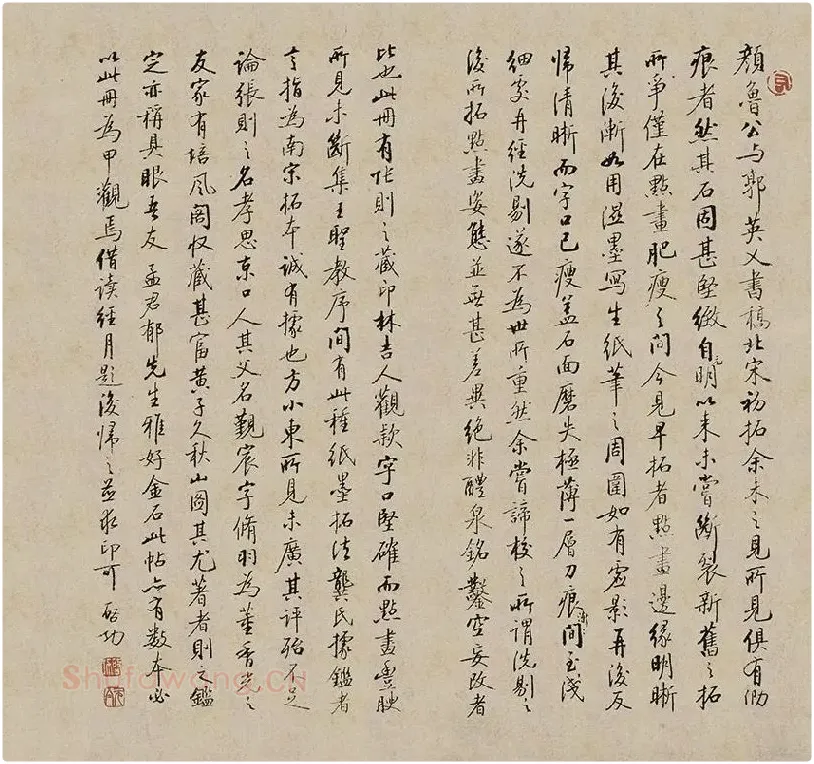 顏魯公与郭英乂書稿北宋初拓余未之見所見俱有泐
痕者然其石固甚堅緻自元明以来未嘗斷裂新舊之拓
所爭僅在點畫肥瘦之間今見早拓者點畫邊緣明晰
其後漸如用濕墨寫生紙筆之周圍如有虛影再後反
歸清晰而字口已瘦蓋石面磨失極薄一層刀痕漸間至淺
細處再經洗剔遂不為世所重然余嘗諦校之所謂洗剔之
後所拓點畫姿態並無甚差異絕非醴泉銘鑿空妄改者
比也此冊有張則之藏印林吉人觀款字口堅確而點畫豐腴
所見未斷集王聖教序間有此種紙墨拓法龔氏據鑑者
言指為南宋拓本誠有據也方小東所見未廣其評殆不足
論張則之名孝思京口人其父名覲宸字脩羽為董香光之
友家有培風閣收藏甚富黃子久秋山圖其尤著者則之鑑
定亦稱具眼吾友孟君郁先生雅好金石此帖亦有数本必
以此冊為甲觀焉借讀經月題後歸之並求印可 啓功
Shufawang.CN